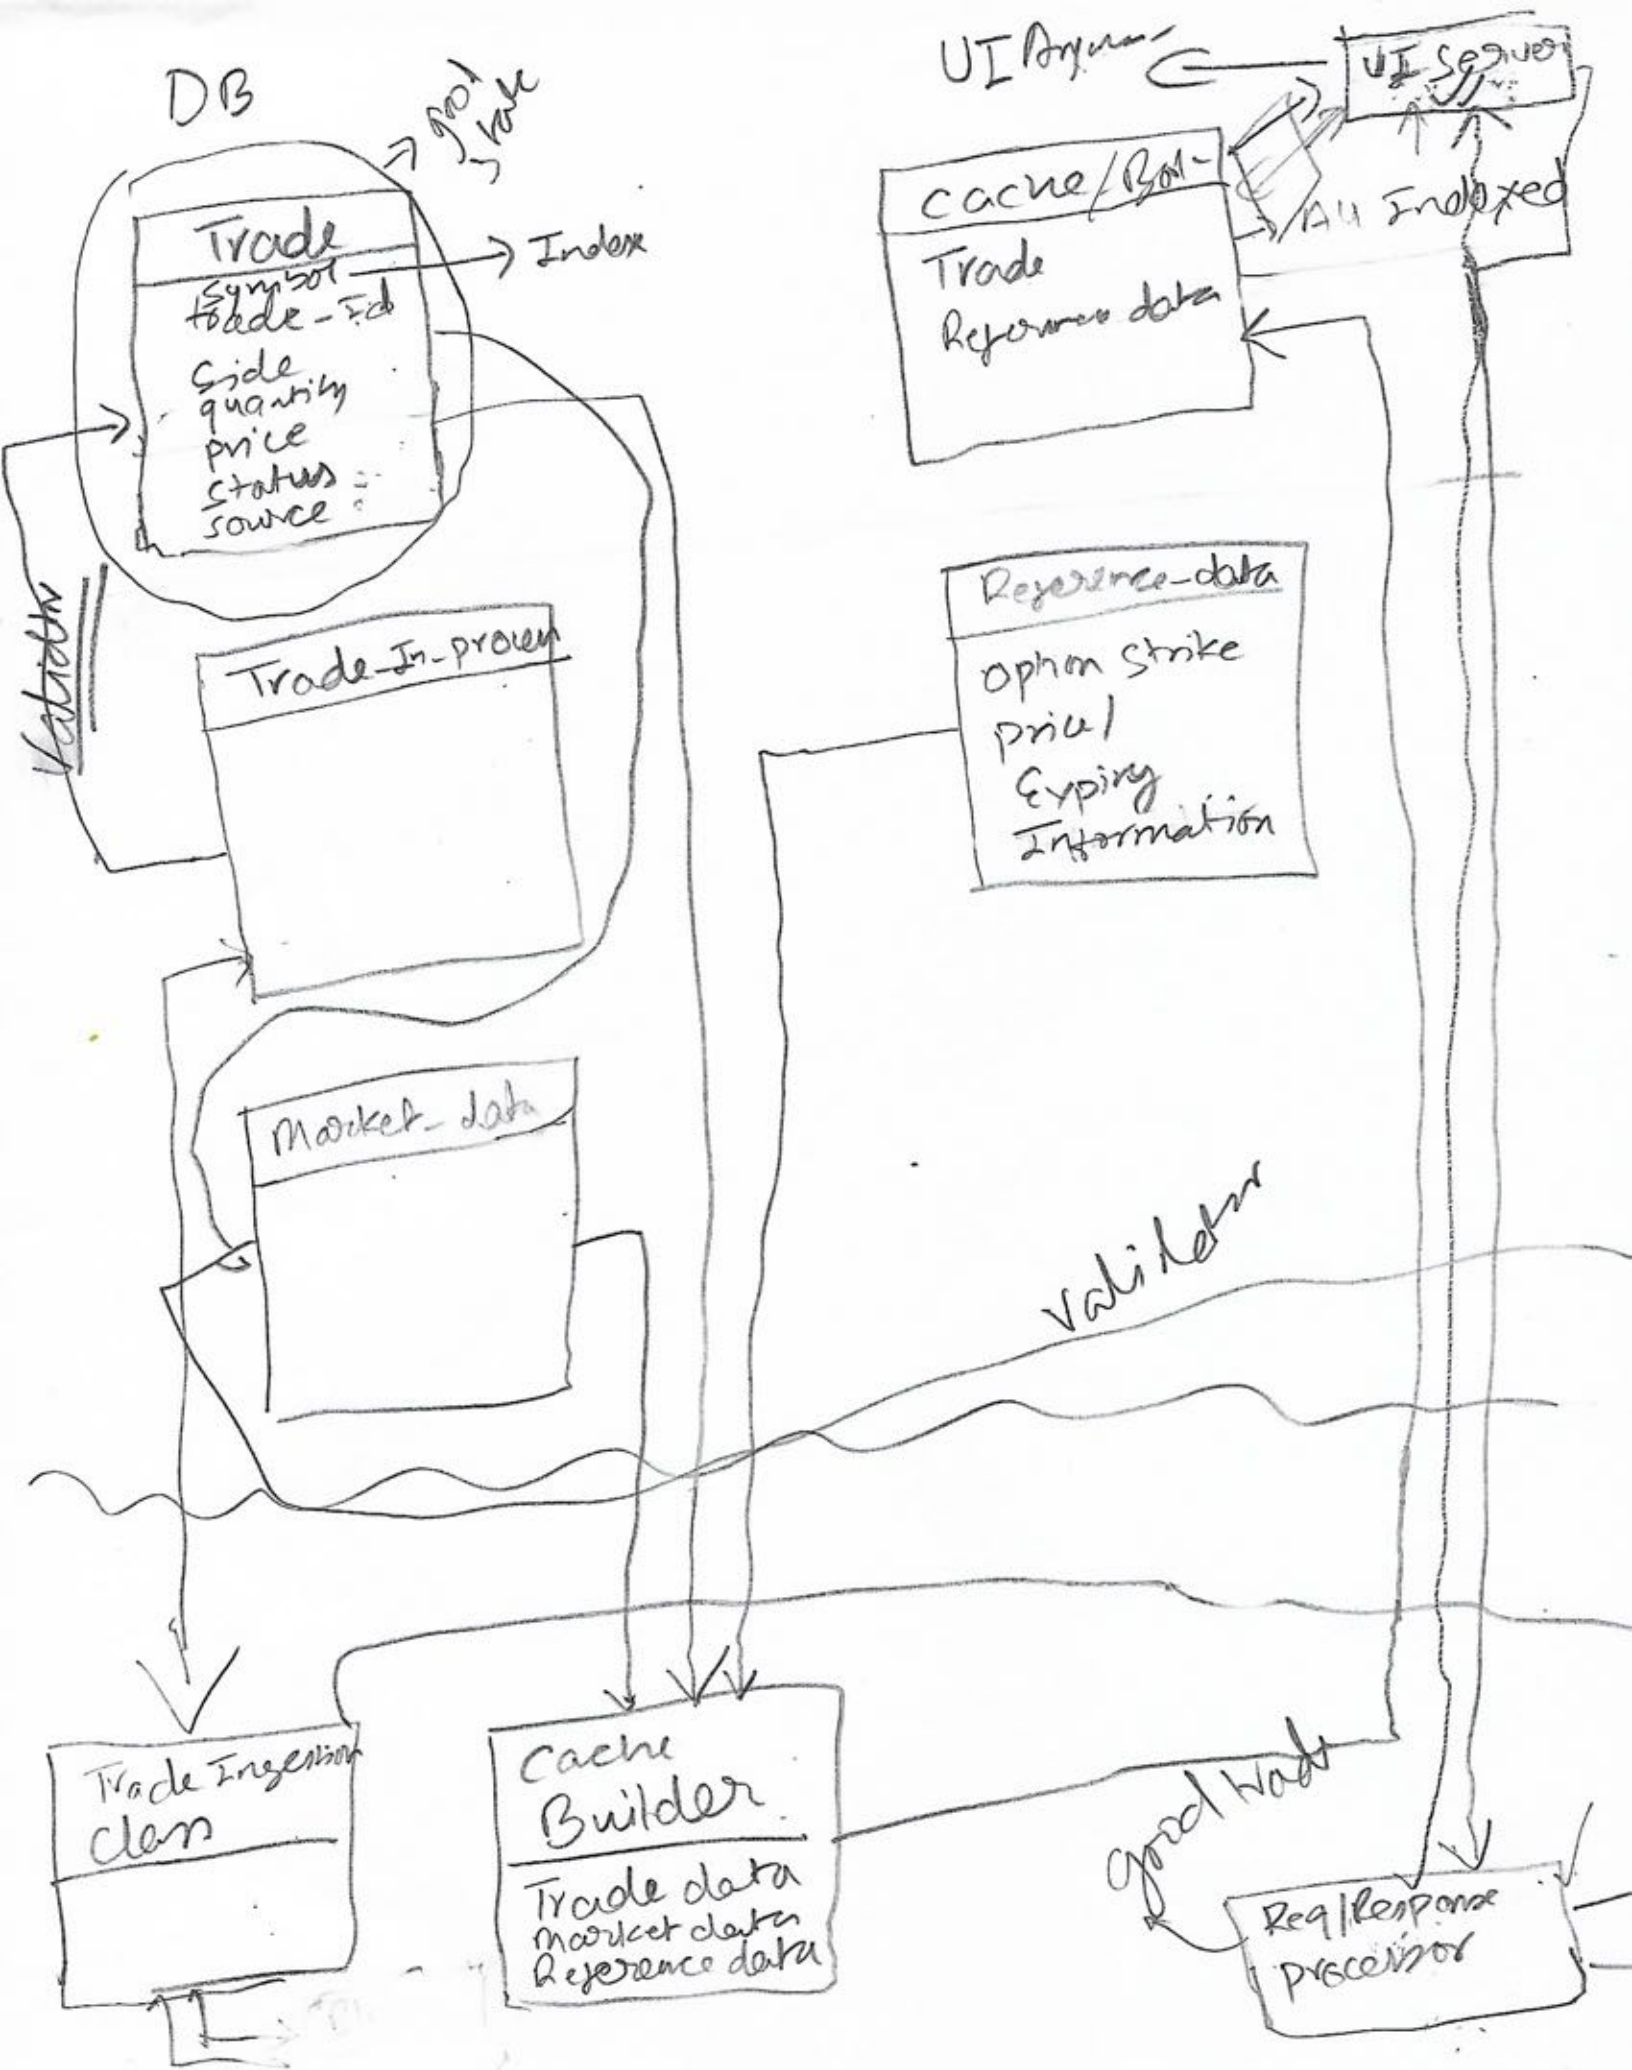 DB
good
trade
Trade
symbol
Index
trade-Id
side
quantity
price
status
source
Trade-In-process
Market-data
UI
UI Server
cache/
All Indexed
Trade
Reference data
Reference-data
option strike
price/
Expiry
Information
validator
Trade Ingestion
class
Cache
Builder
Trade data
Market data
Reference data
good trade
Req/Response
processor